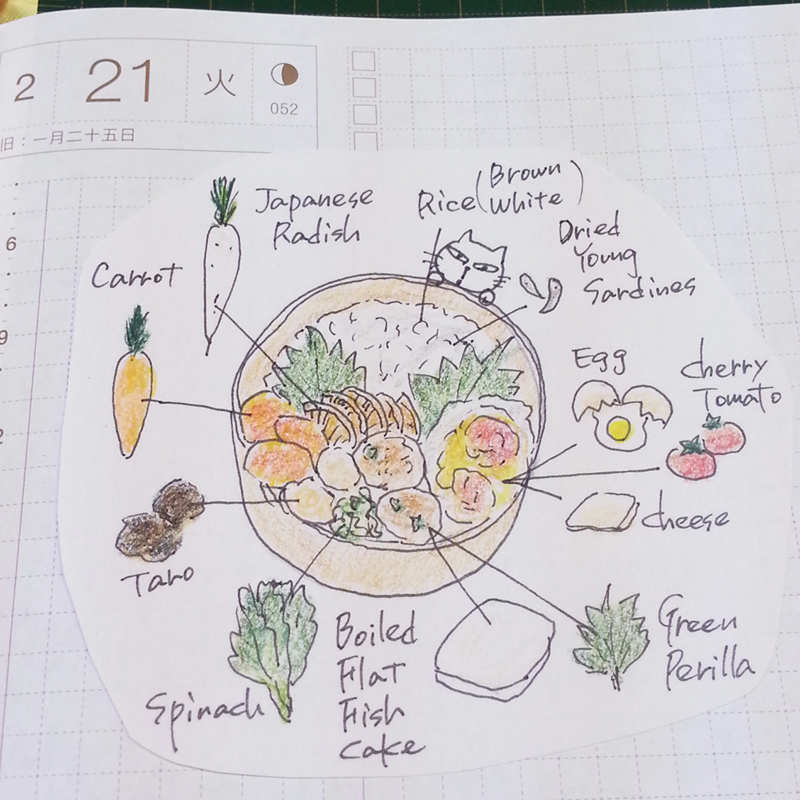 2 21 火
052
旧：一月二十五日
6
9
2
Japanese
Radish
Rice (Brown
White)
Dried
Young
Sardines
Carrot
Egg
cherry
Tomato
cheese
Taro
Spinach
Boiled
Flat
Fish
cake
Green
Perilla